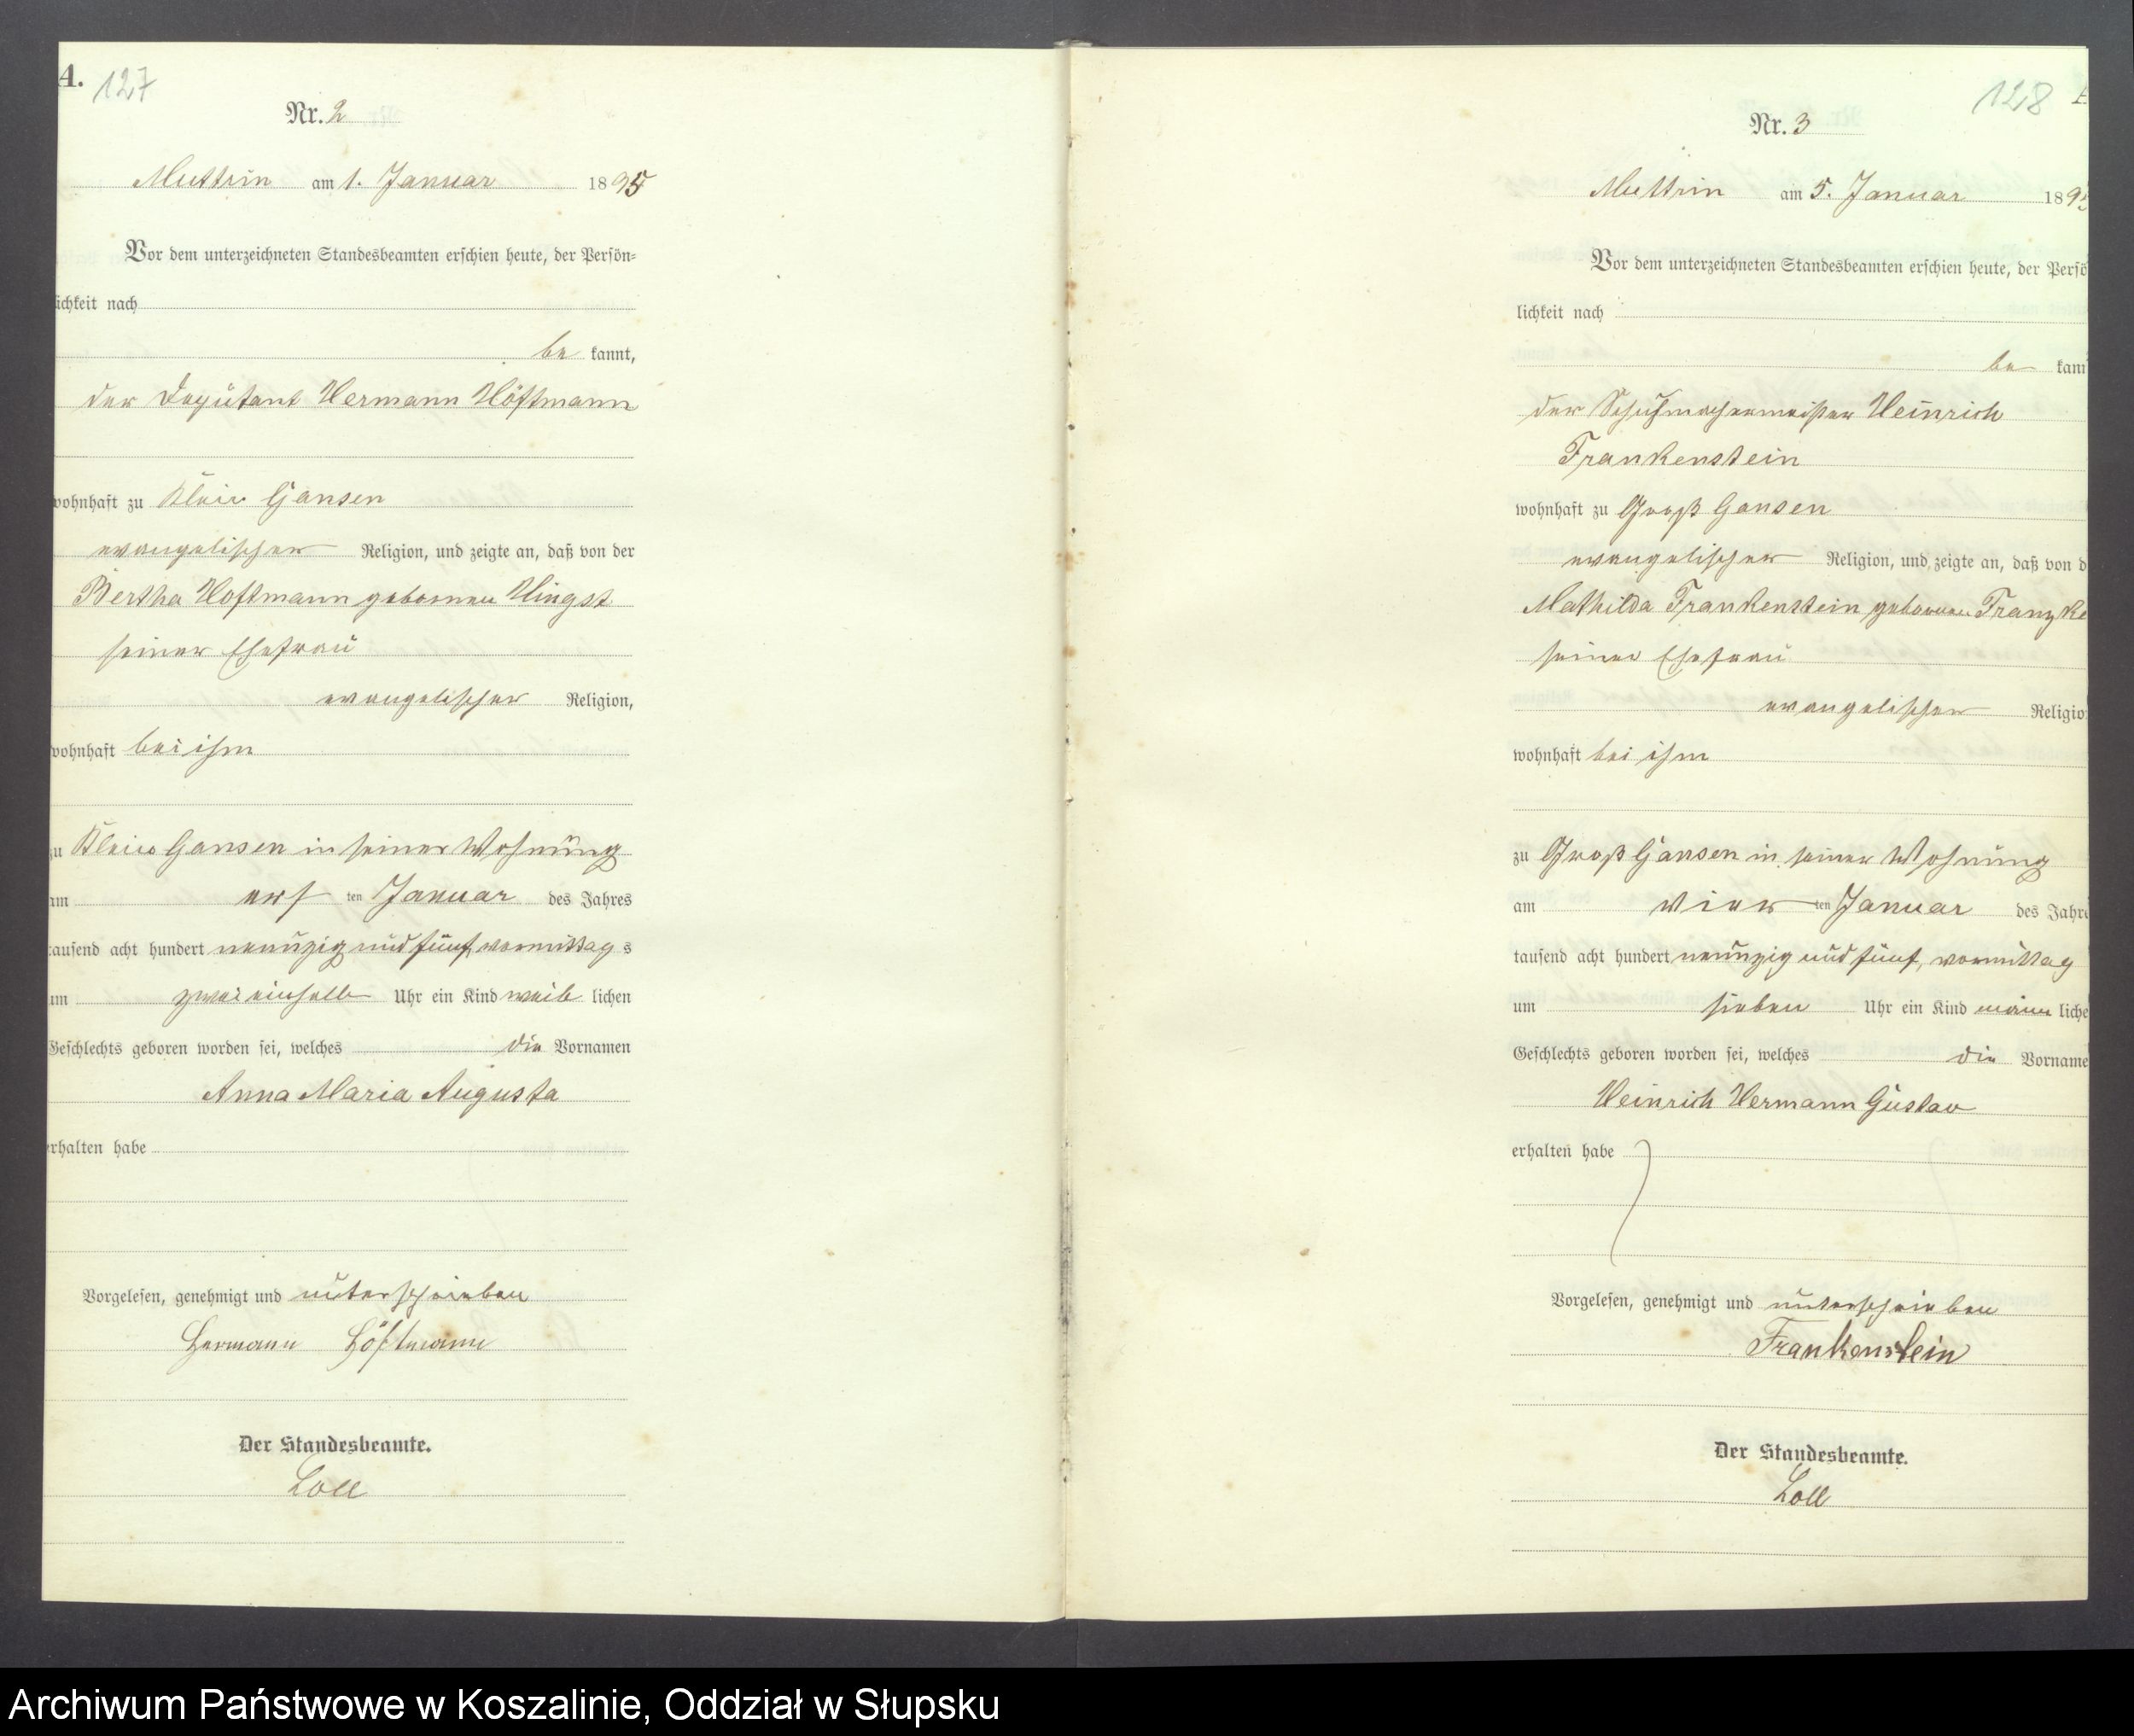 A. 127
Nr. 2
Muttrin am 1. Januar 1895
Vor dem unterzeichneten Standesbeamten erschien heute, der Persön-
lichkeit nach
be kannt,
der Deputant Hermann Höftmann
wohnhaft zu Klein Gansen
evangelischer Religion, und zeigte an, daß von der
Bertha Hoftmann geborenen Hingst
seiner Ehefrau
evangelischer Religion,
wohnhaft bei ihm
zu Klein Gansen in seiner Wohnung
am ersten Januar des Jahres
tausend acht hundert neunzig und fünf, vormittags
um zwei einhalb Uhr ein Kind weiblichen
Geschlechts geboren worden sei, welches die Vornamen
Anna Maria Augusta
erhalten habe
Vorgelesen, genehmigt und unterschrieben
Hermann Höftmann
Der Standesbeamte.
Loll
128
Nr. 3
Muttrin am 5. Januar 189
Vor dem unterzeichneten Standesbeamten erschien heute, der Persö
lichkeit nach
be kann
der Schuhmachermeister Heinrich
Frankenstein
wohnhaft zu Groß Gansen
evangelischer Religion, und zeigte an, daß von d
Mathilda Frankenstein geborenen Franzke
seiner Ehefrau
evangelischer Religio
wohnhaft bei ihm
zu Groß Gansen in seiner Wohnung
am vierten Januar des Jahre
tausend acht hundert neunzig und fünf, vormittag
um sieben Uhr ein Kind männliche
Geschlechts geboren worden sei, welches die Vorname
Heinrich Hermann Gustav
erhalten habe
Vorgelesen, genehmigt und unterschrieben
Frankenstein
Der Standesbeamte.
Loll
Archiwum Państwowe w Koszalinie, Oddział w Słupsku